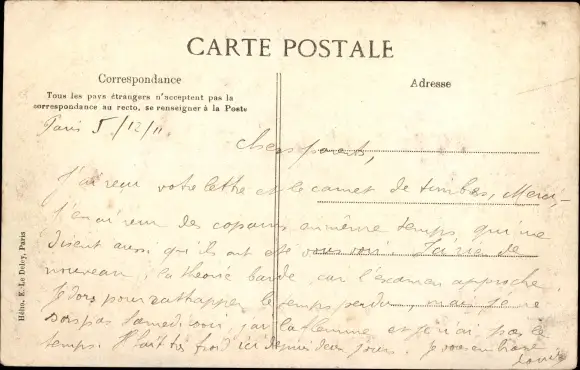 CARTE POSTALE
Correspondance
Adresse
Tous les pays étrangers n'acceptent pas la
correspondance au recto, se renseigner à la Poste
Paris 5/12/11.
Chers parents,
J'ai reçu votre lettre et le carnet de timbres, Merci,
J'en ai reçu des copains en même temps, qui me
disent aussi qu'ils ont été vous voir. J'ai rien de
nouveau, la théorie barde car l'examen approche.
Je dors pour rattrapper le temps perdu, mais je ne
sors pas samedi soir, j'ai la flemme et je n'ai pas le
temps. Il fait très froid ici depuis deux jours. Je vous embrasse
Louis
Hélio. E. Le Deley, Paris